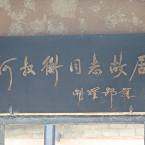 何叔衡同志故居
胡耀邦题